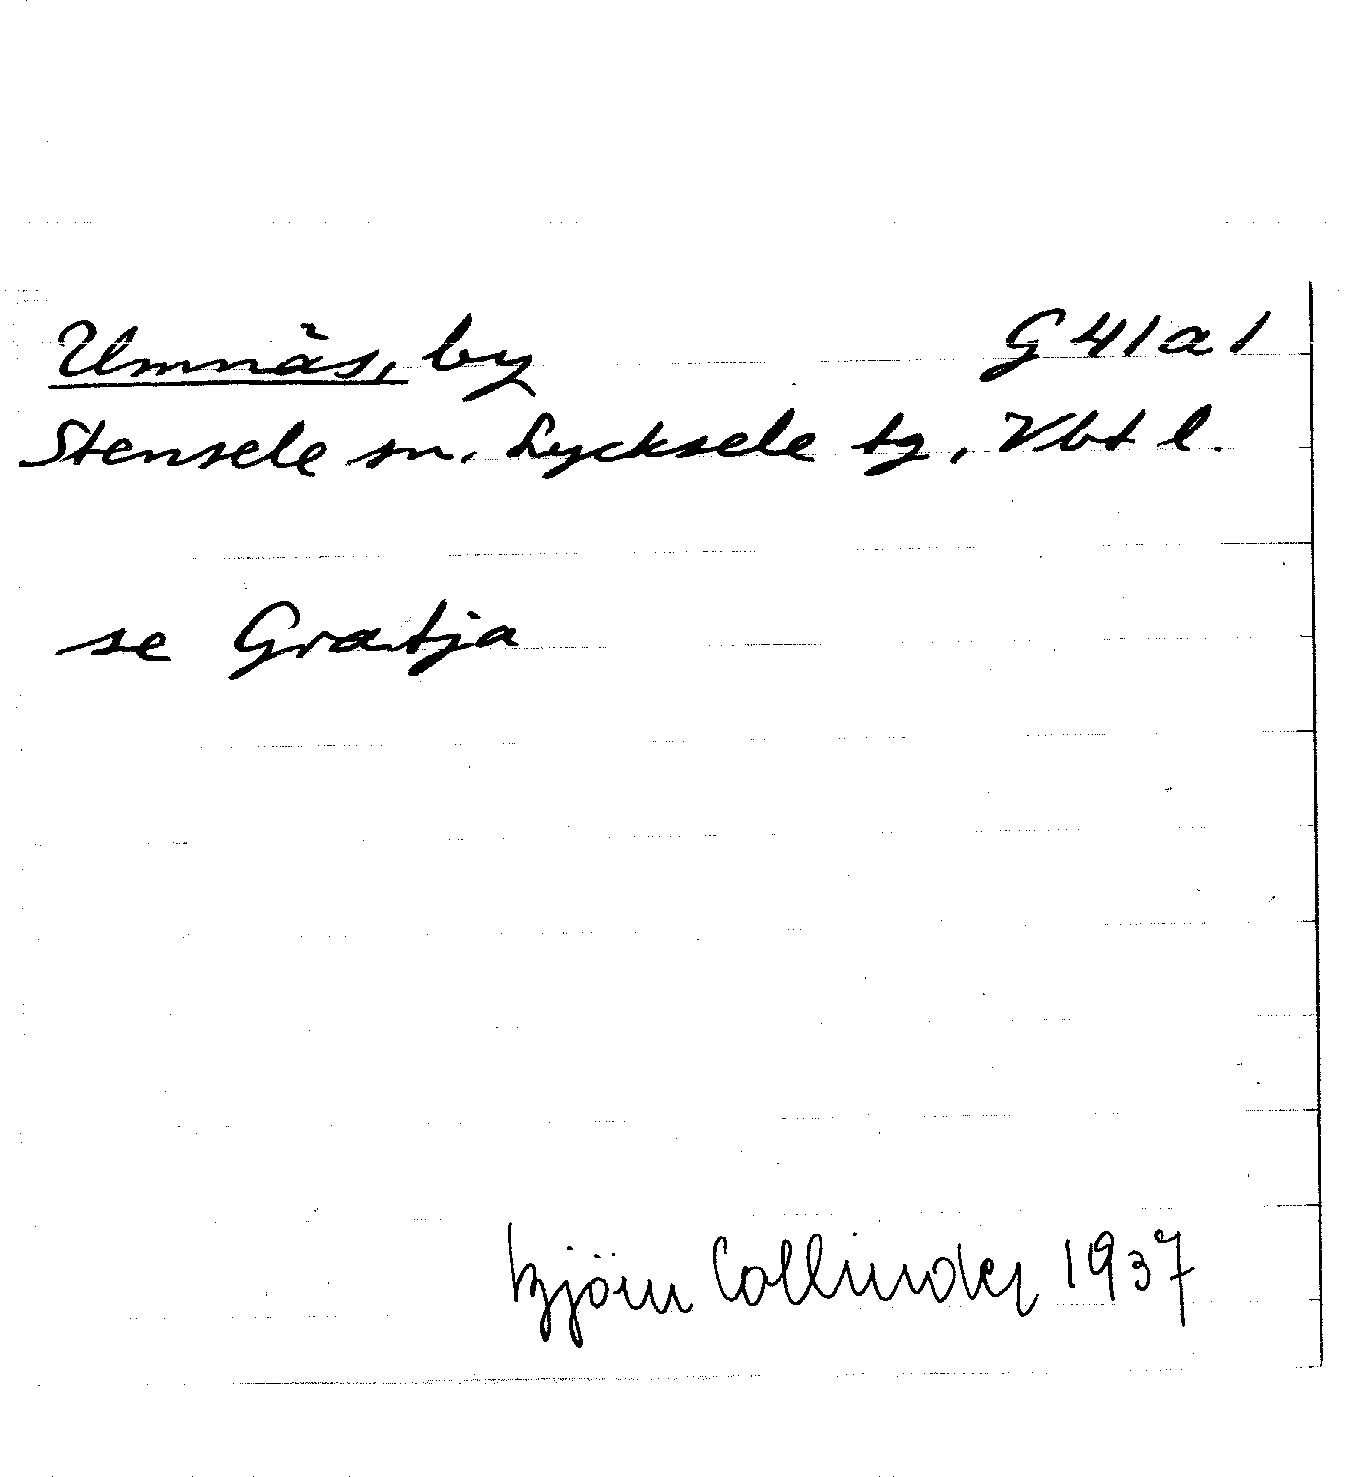 Umnäs, by G41a1
Stensele sn. Lycksele tg, Vbt l.
se Gratja
Björn Collinder 1937